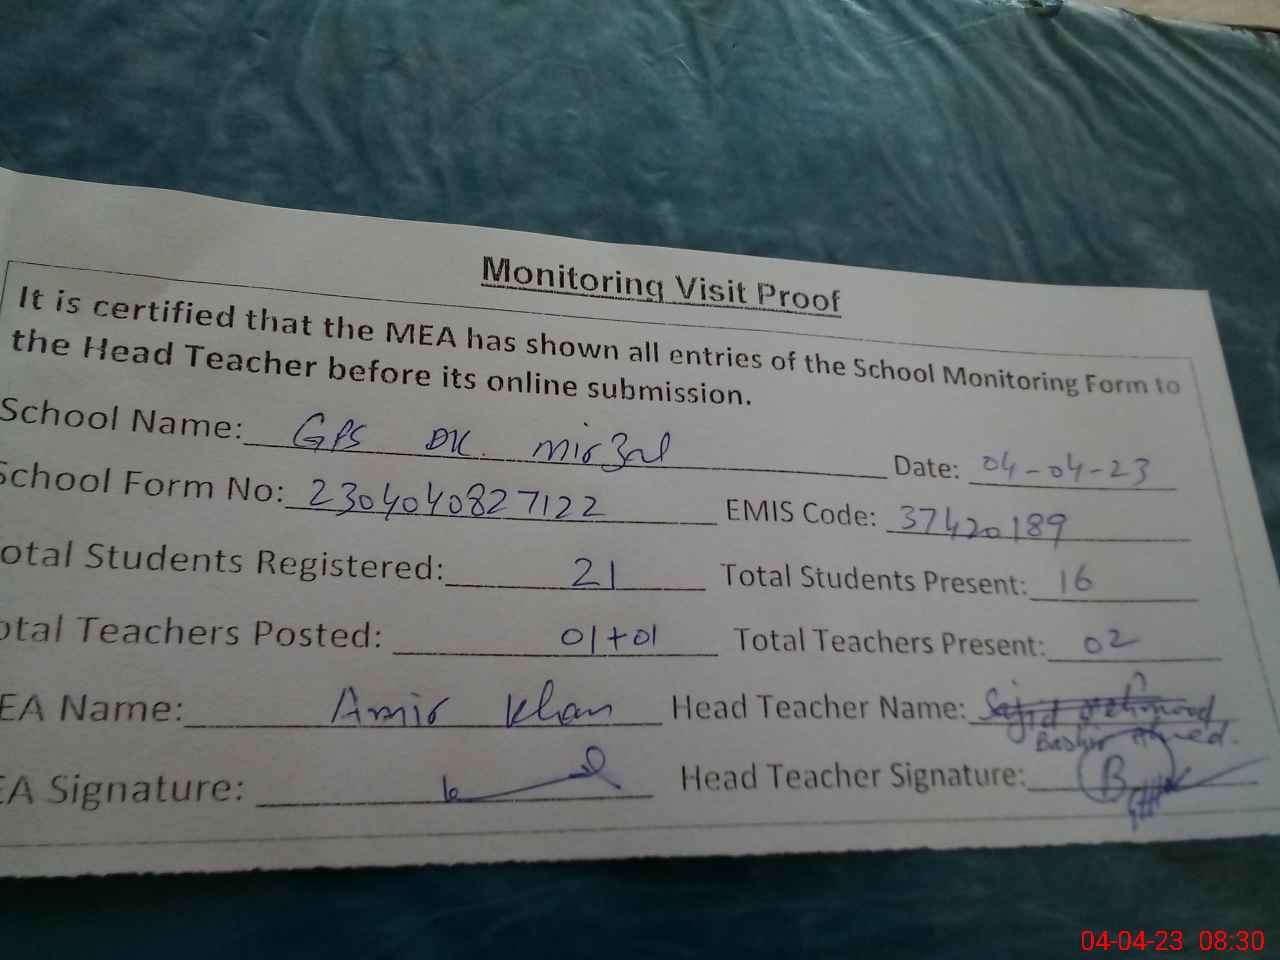 Monitoring Visit Proof
It is certified that the MEA has shown all entries of the School Monitoring Form to
the Head Teacher before its online submission.
School Name: GPS DK. mirzal Date: 04-04-23
School Form No: 230404082 7122 EMIS Code: 37420189
otal Students Registered: 21 Total Students Present: 16
otal Teachers Posted: 01+01 Total Teachers Present: 02
EA Name: Amir Khan Head Teacher Name: Sajid
Bashir Ahmed.
EA Signature: Head Teacher Signature: B
04-04-23 08:30